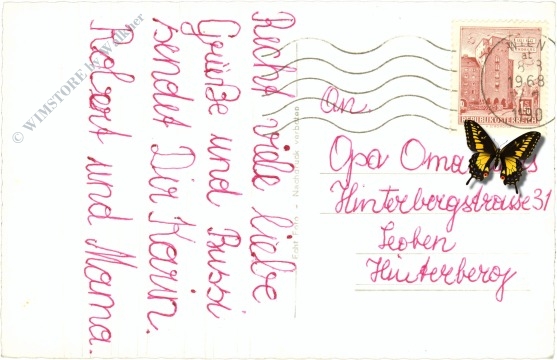 Recht viele liebe
Grüße und Bussi
sendet Dir Karin.
Robert und Mama.
An
Opa Oma
Hinterbergstraße 31
Leoben
Hinterberg
Echt Foto - Nachdruck verboten
WIEN
1968
1.50
REPUBLIK ÖSTERREICH
© WIMSTORE W. Walkner